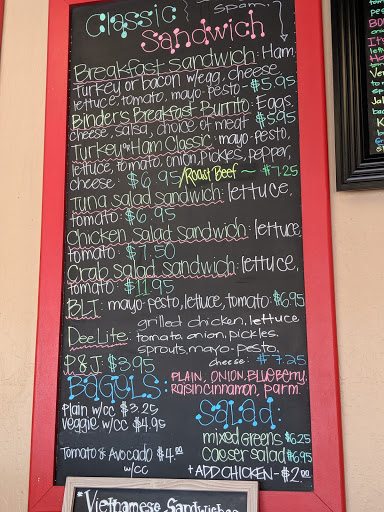 Classic
Spam
Sandwich
Breakfast sandwich: Ham
turkey or bacon w/egg, cheese
lettuce, tomato, mayo-pesto - $5.95
Binder's Breakfast Burrito: Eggs,
cheese, salsa, choice of meat $5.95
Turkey•Ham Classic: mayo-pesto,
lettuce, tomato, onion, pickles, pepper,
cheese: $6.95 /Roast Beef ~ $7.25
Tuna salad sandwich: lettuce,
tomato: $6.95
Chicken salad sandwich: lettuce,
tomato: $7.50
Crab salad sandwich: lettuce,
tomato: $11.95
BLT: mayo-pesto, lettuce, tomato: $6.95
grilled chicken, lettuce
DeeLite: tomato, onion, pickles,
sprouts, mayo-pesto,
cheese: $7.25
P.B&J: $3.95
BAGYLS: PLAIN, ONION, BLUEBERRY,
Raisin Cinnamon, Parm.
plain w/cc $3.25
veggie w/cc $4.95
Salad:
mixed Greens $6.25
Tomato & Avocado $4.00
w/cc
caeser salad $6.95
+ ADD CHICKEN - $2.00
Vietnamese Sandwiches